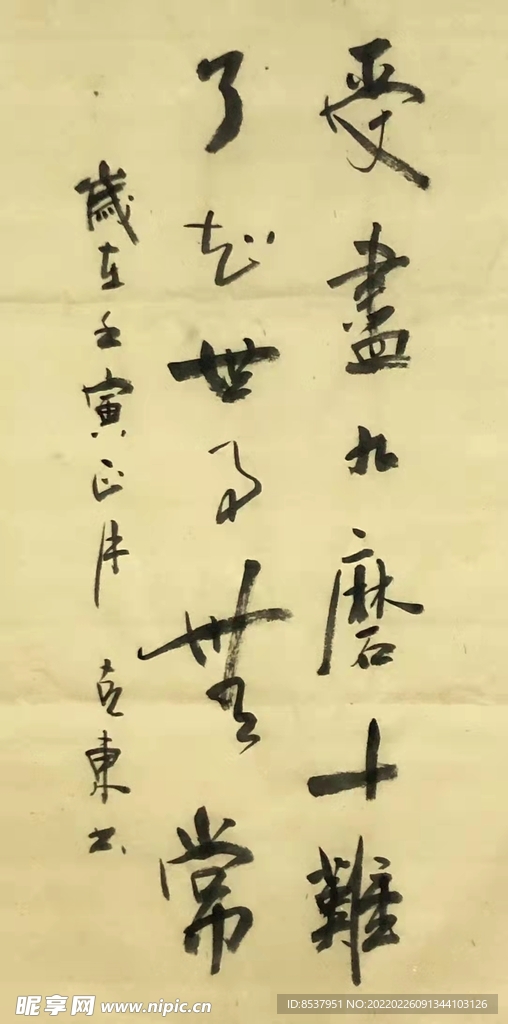 受盡九磨十難
了知世事無常
歲在壬寅正月 克東书
昵享网 www.nipic.cn
ID:8537951 NO:20220226091344103126